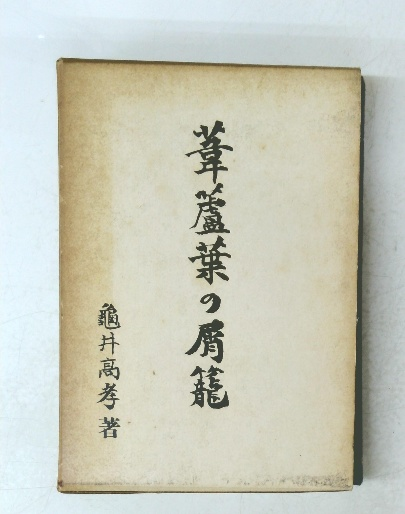 葦蘆葉の屑籠
龜井高孝著